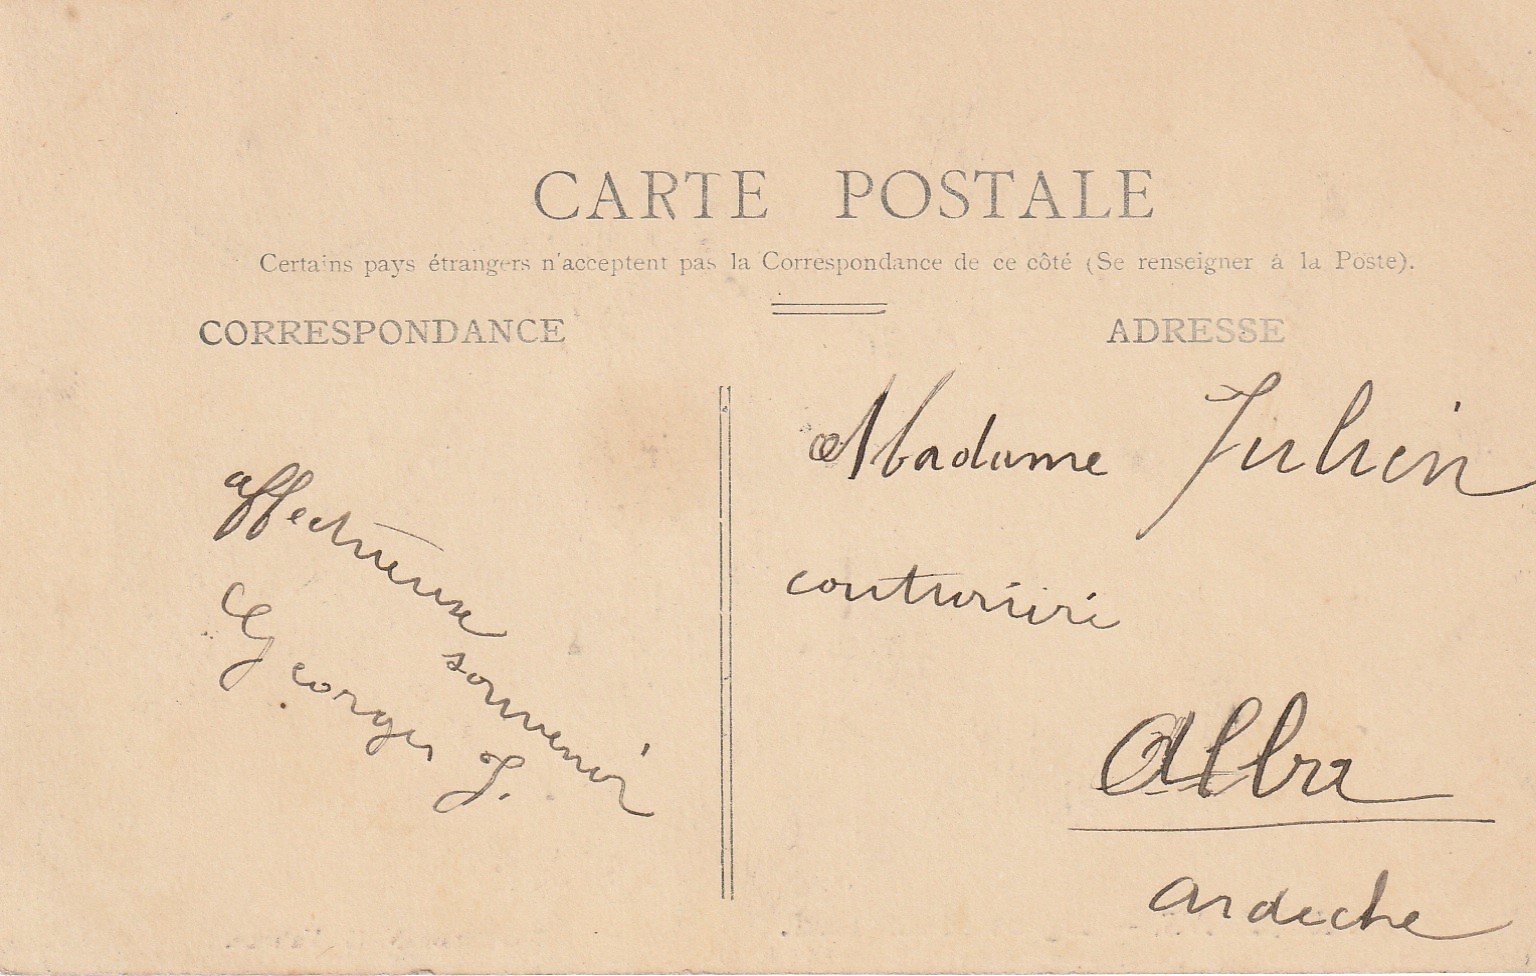 CARTE POSTALE
Certains pays étrangers n'acceptent pas la Correspondance de ce côté (Se renseigner à la Poste).
CORRESPONDANCE
ADRESSE
affectueux
souvenir
Georges J.
Madame Julien
couturière
Alba
ardeche